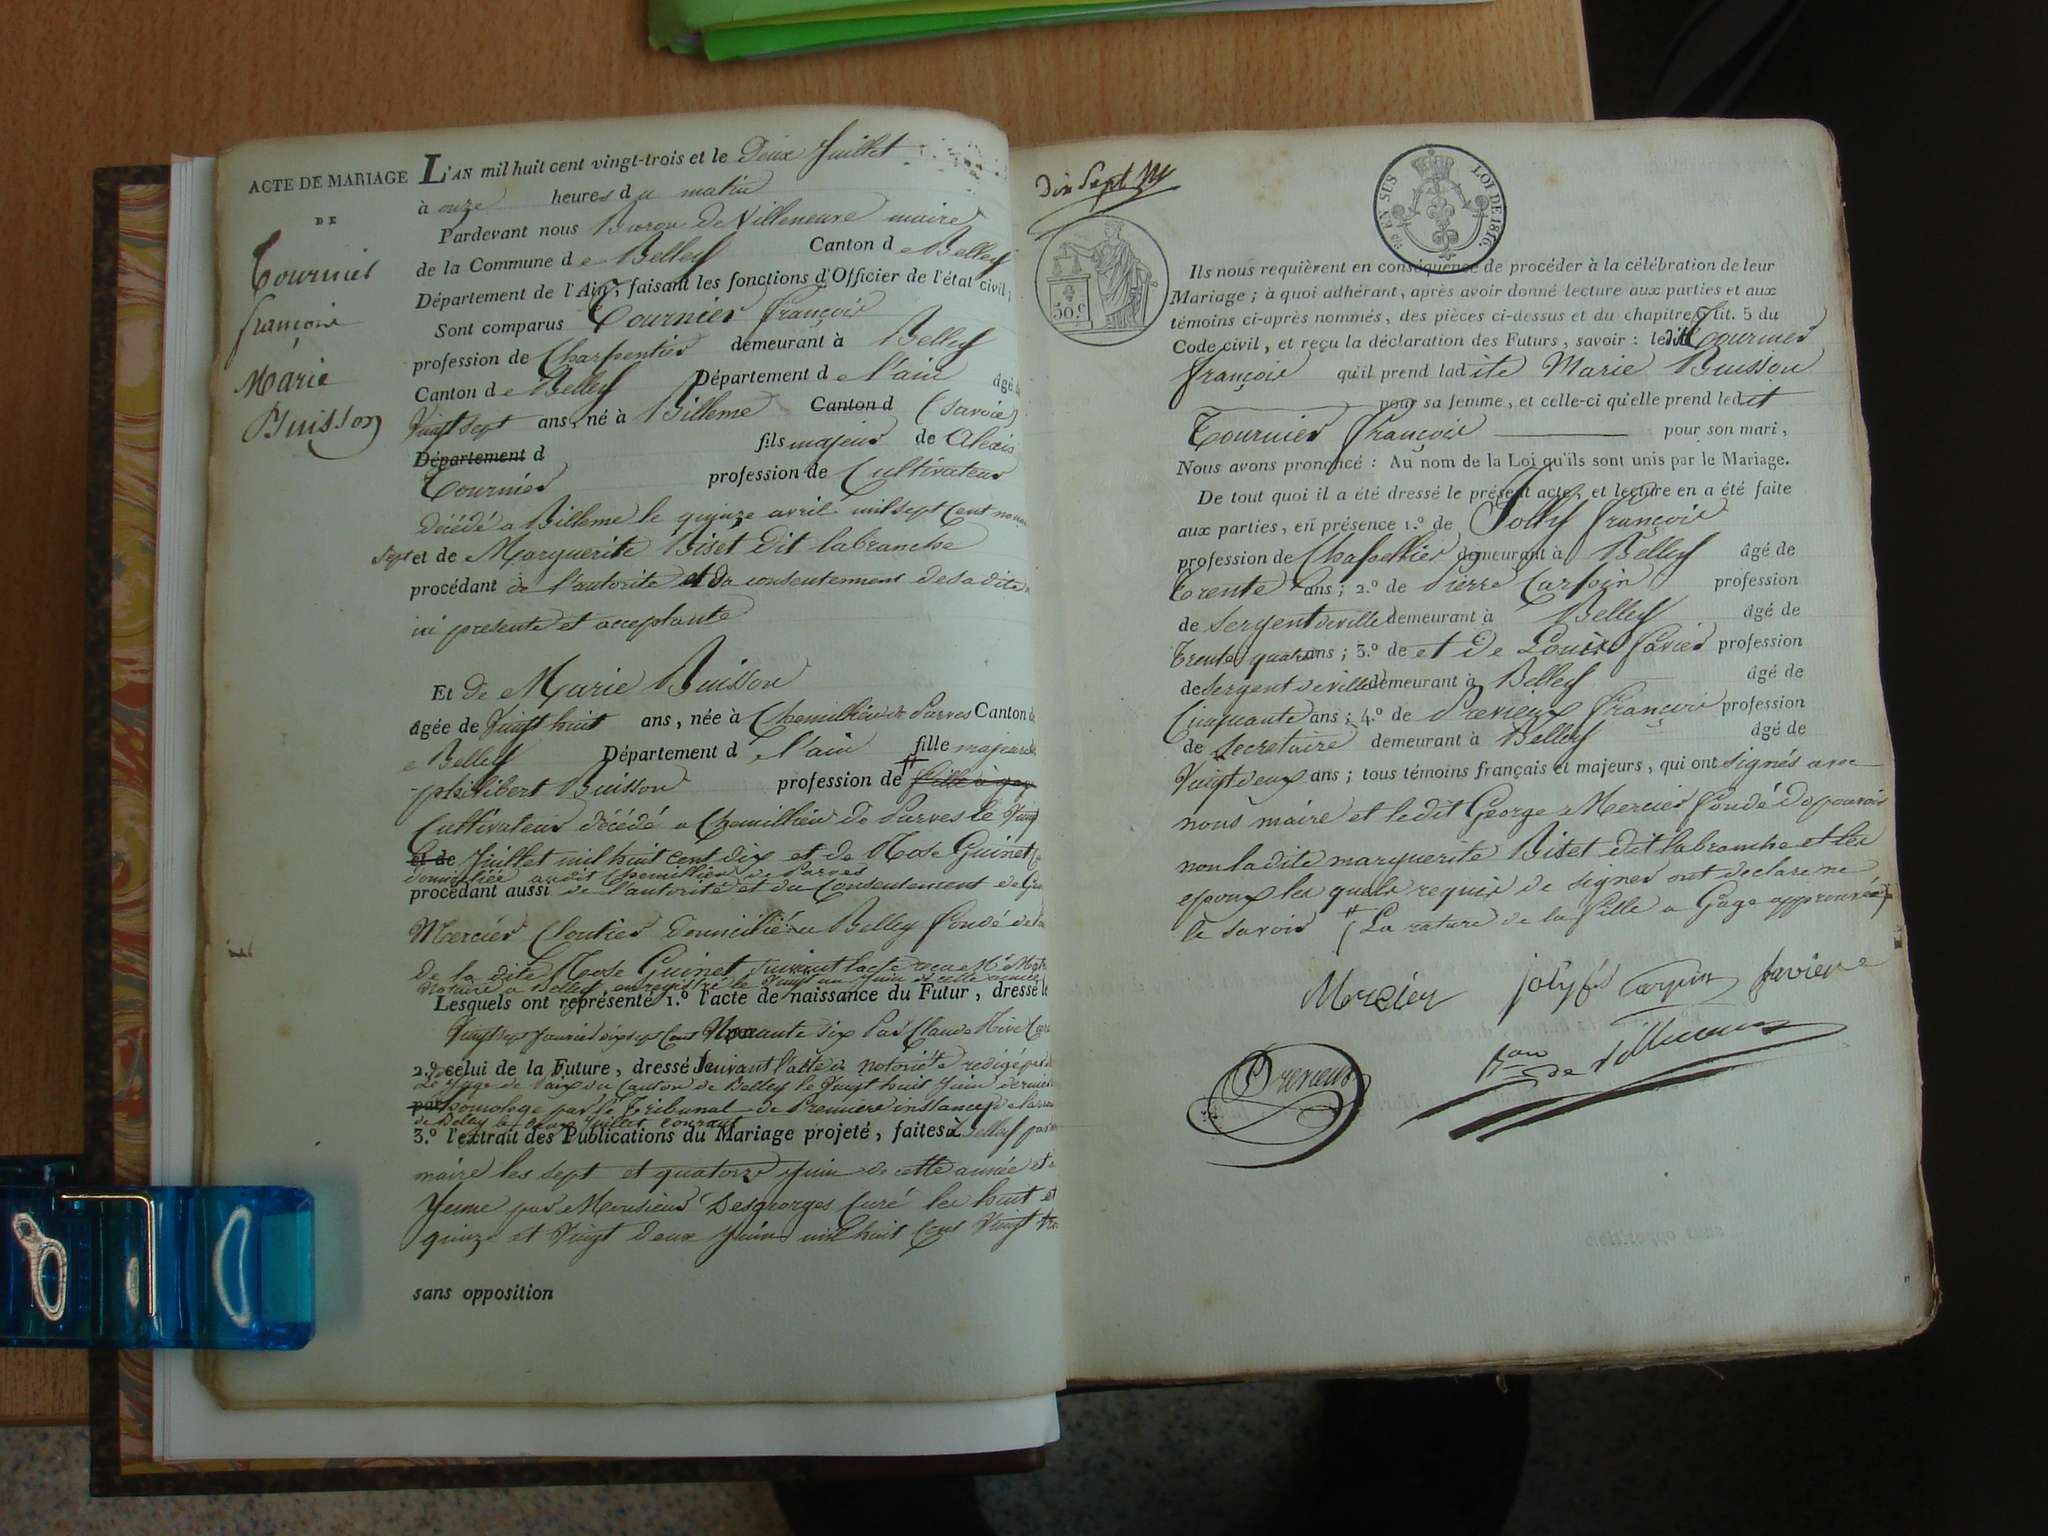 ACTE DE MARIAGE
DE
Tournier
françois
Marie
Buisson
L'AN mil huit cent vingt-trois et le Deux Juillet
à onze heures du matin
Pardevant nous Baron de Villeneuve maire
de la Commune de Belley Canton de Belley
Département de l'Ain, faisant les fonctions d'Officier de l'état civil;
Sont comparus Tournier françois
profession de Charpentier demeurant à Belley
Canton de Belley Département de l'ain âgé d
Vingt sept ans, né à Billieme Canton d (Savoie)
Département d fils majeur de Alexis
Tournier profession de Cultivateur
décédé a Billieme le quinze avril mil sept Cent
sept et de Marguerite Biset dit labranche
procédant de l'autorité et du consentement de sa dite
ici presente et acceptante
Et de Marie Buisson
âgée de Vingt huit ans, née à Chemillieu de Parves Canton d
e Belley Département d l'ain fille majeure de
philibert Buisson profession de fille à gage
Cultivateur décédé a Chemillieu de Parves le Vingt
et de Juillet mil huit cent dix et de Rose Guinet
domiciliée audit Chemillieu de Parves
procédant aussi de l'autorité et du Consentement de
Mercier Cloutier domicilié a Belley fondé de
de la dite Rose Guinet suivant l'acte recu Me
Notaire a Belley, enregistré le Vingt un Juin de cette année
Lesquels ont représenté 1.º l'acte de naissance du Futur, dressé le
Vingt sept fevrier dix sept Cent Nonante six Par Claude Rive Curé
2.º celui de la Future, dressé Suivant l'acte de notoriété redigé par
Le Juge de Paix du Canton de Belley le Vingt huit Juin dernier
par homologé par le Tribunal de Premiere instance de
de Belley le Juillet courant
3.º l'extrait des Publications du Mariage projeté, faites à Belley par
maire les sept et quatorze Juin de cette année et a
Yenne par Monsieur Desgeorges Curé les huit et
quinze et Vingt deux Juin mil huit Cent Vingt trois
sans opposition
Dix Sept
50.c
50 EN SUS
LOI DE 1816.
Ils nous requièrent en conséquence de procéder à la célébration de leur
Mariage; à quoi adhérant, après avoir donné lecture aux parties et aux
témoins ci-après nommés, des pièces ci-dessus et du chapitre 6 tit. 5 du
Code civil, et reçu la déclaration des Futurs, savoir: ledit Tournier
françois qu'il prend ladite Marie Buisson
pour sa femme, et celle-ci qu'elle prend ledit
Tournier françois pour son mari,
Nous avons prononcé: Au nom de la Loi qu'ils sont unis par le Mariage.
De tout quoi il a été dressé le présent acte, et lecture en a été faite
aux parties, en présence 1.º de Jolly françois
profession de Chapellier demeurant à Belley âgé de
Trente ans; 2.º de Pierre Carpin profession
de Sergent de ville demeurant à Belley âgé de
Trente quatre ans; 3.º de et de Louis favier profession
de Sergent de ville demeurant à Belley âgé de
Cinquante ans; 4.º de Previeux françois profession
de Secretaire demeurant à Belley âgé de
Vingt deux ans; tous témoins français et majeurs, qui ont signés avec
nous maire et le dit George Mercier fondé de pouvoir
non la dite marguerite Biset dit labranche et les
epoux les quels requis de signer ont declaré ne
le savoir # (La rature de la fille a Gage approuvée)
Mercier jolyfs Carpin favier
Previeux
Bon de Villeneuve